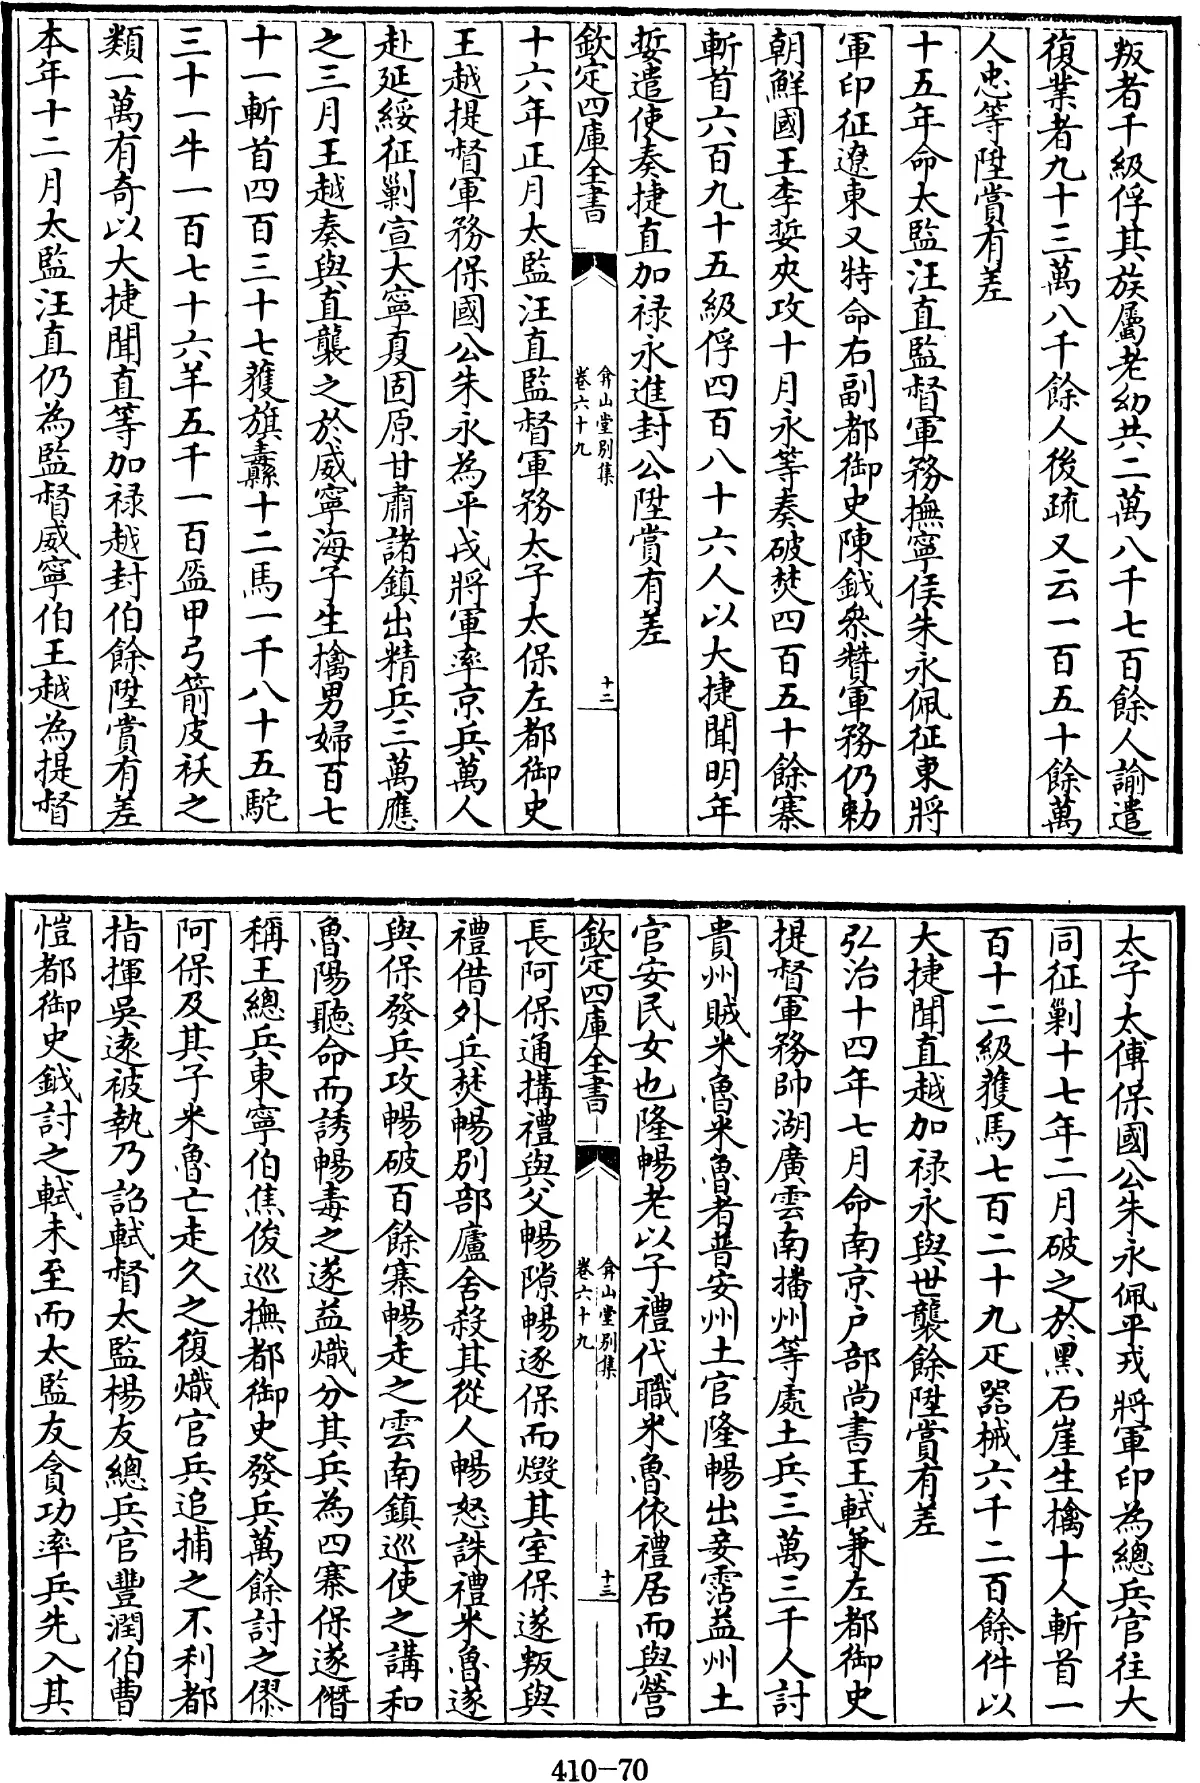 叛者千級俘其族屬老幼共二萬八千七百餘人諭遣
復業者九十三萬八千餘人後疏又云一百五十餘萬
人忠等陞賞有差
十五年命太監汪直監督軍務撫寧侯朱永佩征東將
軍印征遼東又特命右副都御史陳鉞叅贊軍務仍勅
朝鮮國王李娎夾攻十月永等奏破焚四百五十餘寨
斬首六百九十五級俘四百八十六人以大捷聞明年
娎遣使奏捷直加禄永進封公陞賞有差
欽定四庫全書
弇山堂別集
卷六十九
十二
十六年正月太監汪直監督軍務太子太保左都御史
王越提督軍務保國公朱永為平戎將軍率京兵萬人
赴延綏征剿宣大寧夏固原甘肅諸鎮出精兵二萬應
之三月王越奏與直襲之於威寧海子生擒男婦百七
十一斬首四百三十七獲旗纛十二馬一千八十五駝
三十一牛一百七十六羊五千一百盔甲弓箭皮袄之
類一萬有奇以大捷聞直等加禄越封伯餘陞賞有差
本年十二月太監汪直仍為監督威寧伯王越為提督
太子太傅保國公朱永佩平戎將軍印為總兵官往大
同征剿十七年二月破之於黑石崖生擒十人斬首一
百十二級獲馬七百二十九疋器械六千二百餘件以
大捷聞直越加禄永與世襲餘陞賞有差
弘治十四年七月命南京户部尚書王軾兼左都御史
提督軍務帥湖廣雲南播州等處土兵三萬三千人討
貴州賊米魯米魯者普安州土官隆暢出妾霑益州土
官安民女也隆暢老以子禮代職米魯依禮居而與營
欽定四庫全書
弇山堂別集
卷六十九
十三
長阿保通搆禮與父暢隙暢逐保而燬其室保遂叛與
禮借外兵焚暢別部廬舍殺其從人暢怒誅禮米魯遂
與保發兵攻暢破百餘寨暢走之雲南鎮巡使之講和
魯陽聽命而誘暢毒之遂益熾分其兵為四寨保遂僭
稱王總兵東寧伯焦俊巡撫都御史發兵萬餘討之僇
阿保及其子米魯亡走久之復熾官兵追捕之不利都
指揮吳遠被執乃詔軾督太監楊友總兵官豐潤伯曹
愷都御史鉞討之軾未至而太監友貪功率兵先入其
410-70